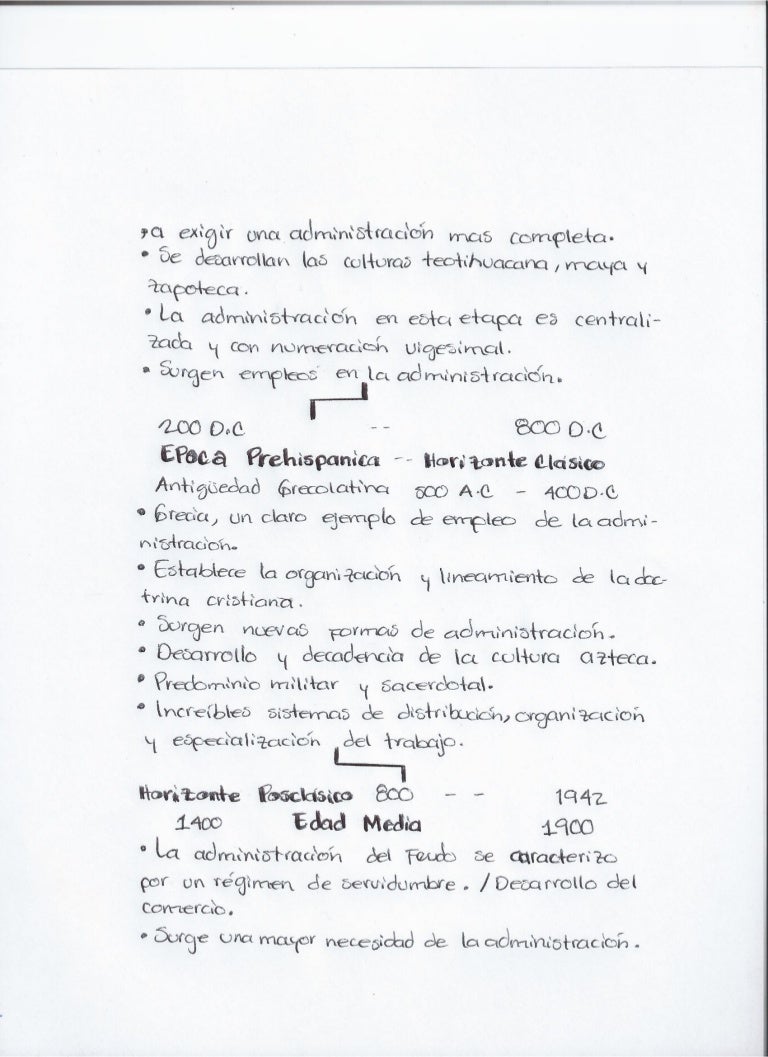 ,a exigir una administración mas completa.
• Se desarrollan las culturas teotihuacana, maya y
zapoteca.
• La administración en esta etapa es centrali-
zada y con numeración vigesimal.
• Surgen empleos en la administración.
200 D.C -- 800 D.C
EPoca Prehispanica -- Horizonte Clásico
Antigüedad Grecolatina 500 A.C - 400 D.C
• Grecia, un claro ejemplo de empleo de la admi-
nistración.
• Establece la organización y lineamiento de la doc-
trina cristiana.
• Surgen nuevas formas de administración.
• Desarrollo y decadencia de la cultura azteca.
• Predominio militar y sacerdotal.
• Increíbles sistemas de distribución, organización
y especialización del trabajo.
Horizonte Posclásico 800 -- 1942
1400 Edad Media 1900
• La administración del Feudo se caracterizo
por un régimen de servidumbre. / Desarrollo del
comercio.
• Surge una mayor necesidad de la administración.